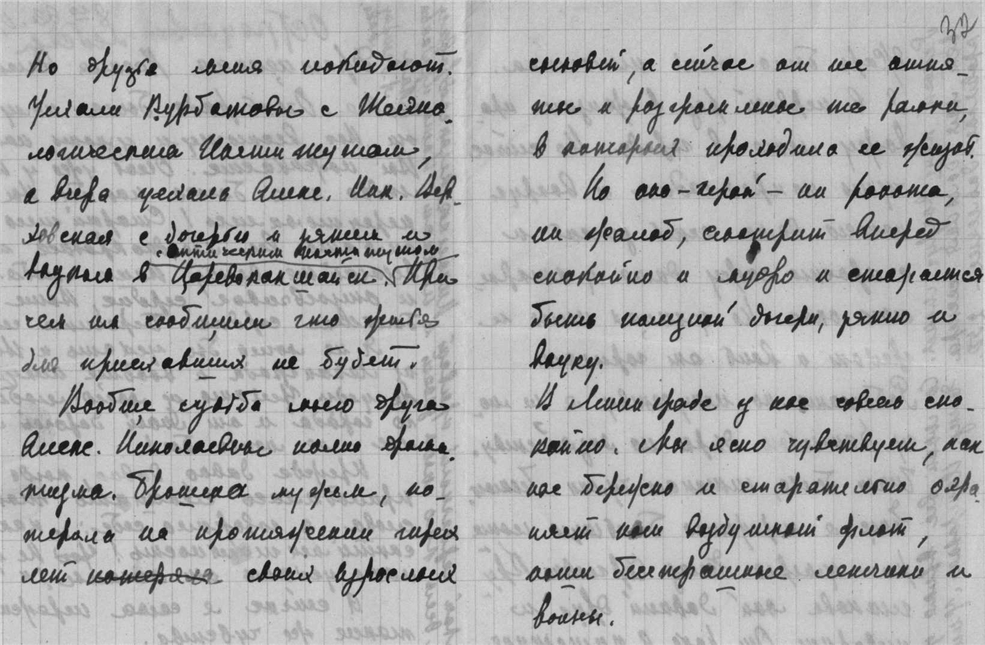 Но друзья меня покидают.
Уехали Вурбатовы с
логическим Институтом,
а вчера уехала Алекс. Ник. Вер-
ховская с дочерью и зятем и
оптическим институтом
внуком в Царевококшайск. При
чем им сообщили что жилья
для приехавших не будет.
Вообще судьба моего друга
Алекс. Николаевны полна драма-
тизма. Брошена мужем, по-
теряла на протяжении трех
лет потеряла своих взрослых
37
сыновей, а сейчас от нее отня-
ты и разгромлены те рамки,
в которых проходила ее жизнь.
Но она - герой - ни ропота,
ни жалоб, смотрит вперед
спокойно и мудро и старается
быть полезной дочери, зятю и
внуку.
В Ленинграде у нас совсем спо-
койно. Мы ясно чувствуем, как
нас бережно и старательно охра-
няет наш воздушный флот,
наши бесстрашные летчики и
войны.